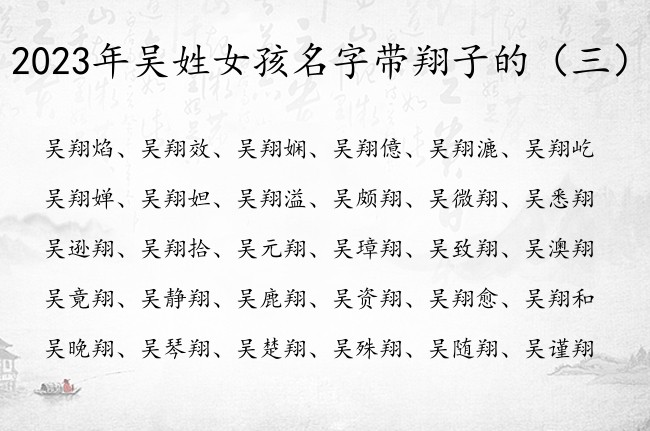 2023年吴姓女孩名字带翔子的（三）
吴翔焰、吴翔效、吴翔娴、吴翔億、吴翔漉、吴翔屹
吴翔婵、吴翔妲、吴翔溢、吴颇翔、吴微翔、吴悉翔
吴逊翔、吴翔拾、吴元翔、吴璋翔、吴致翔、吴澳翔
吴竟翔、吴静翔、吴鹿翔、吴资翔、吴翔愈、吴翔和
吴晚翔、吴琴翔、吴楚翔、吴殊翔、吴随翔、吴谨翔